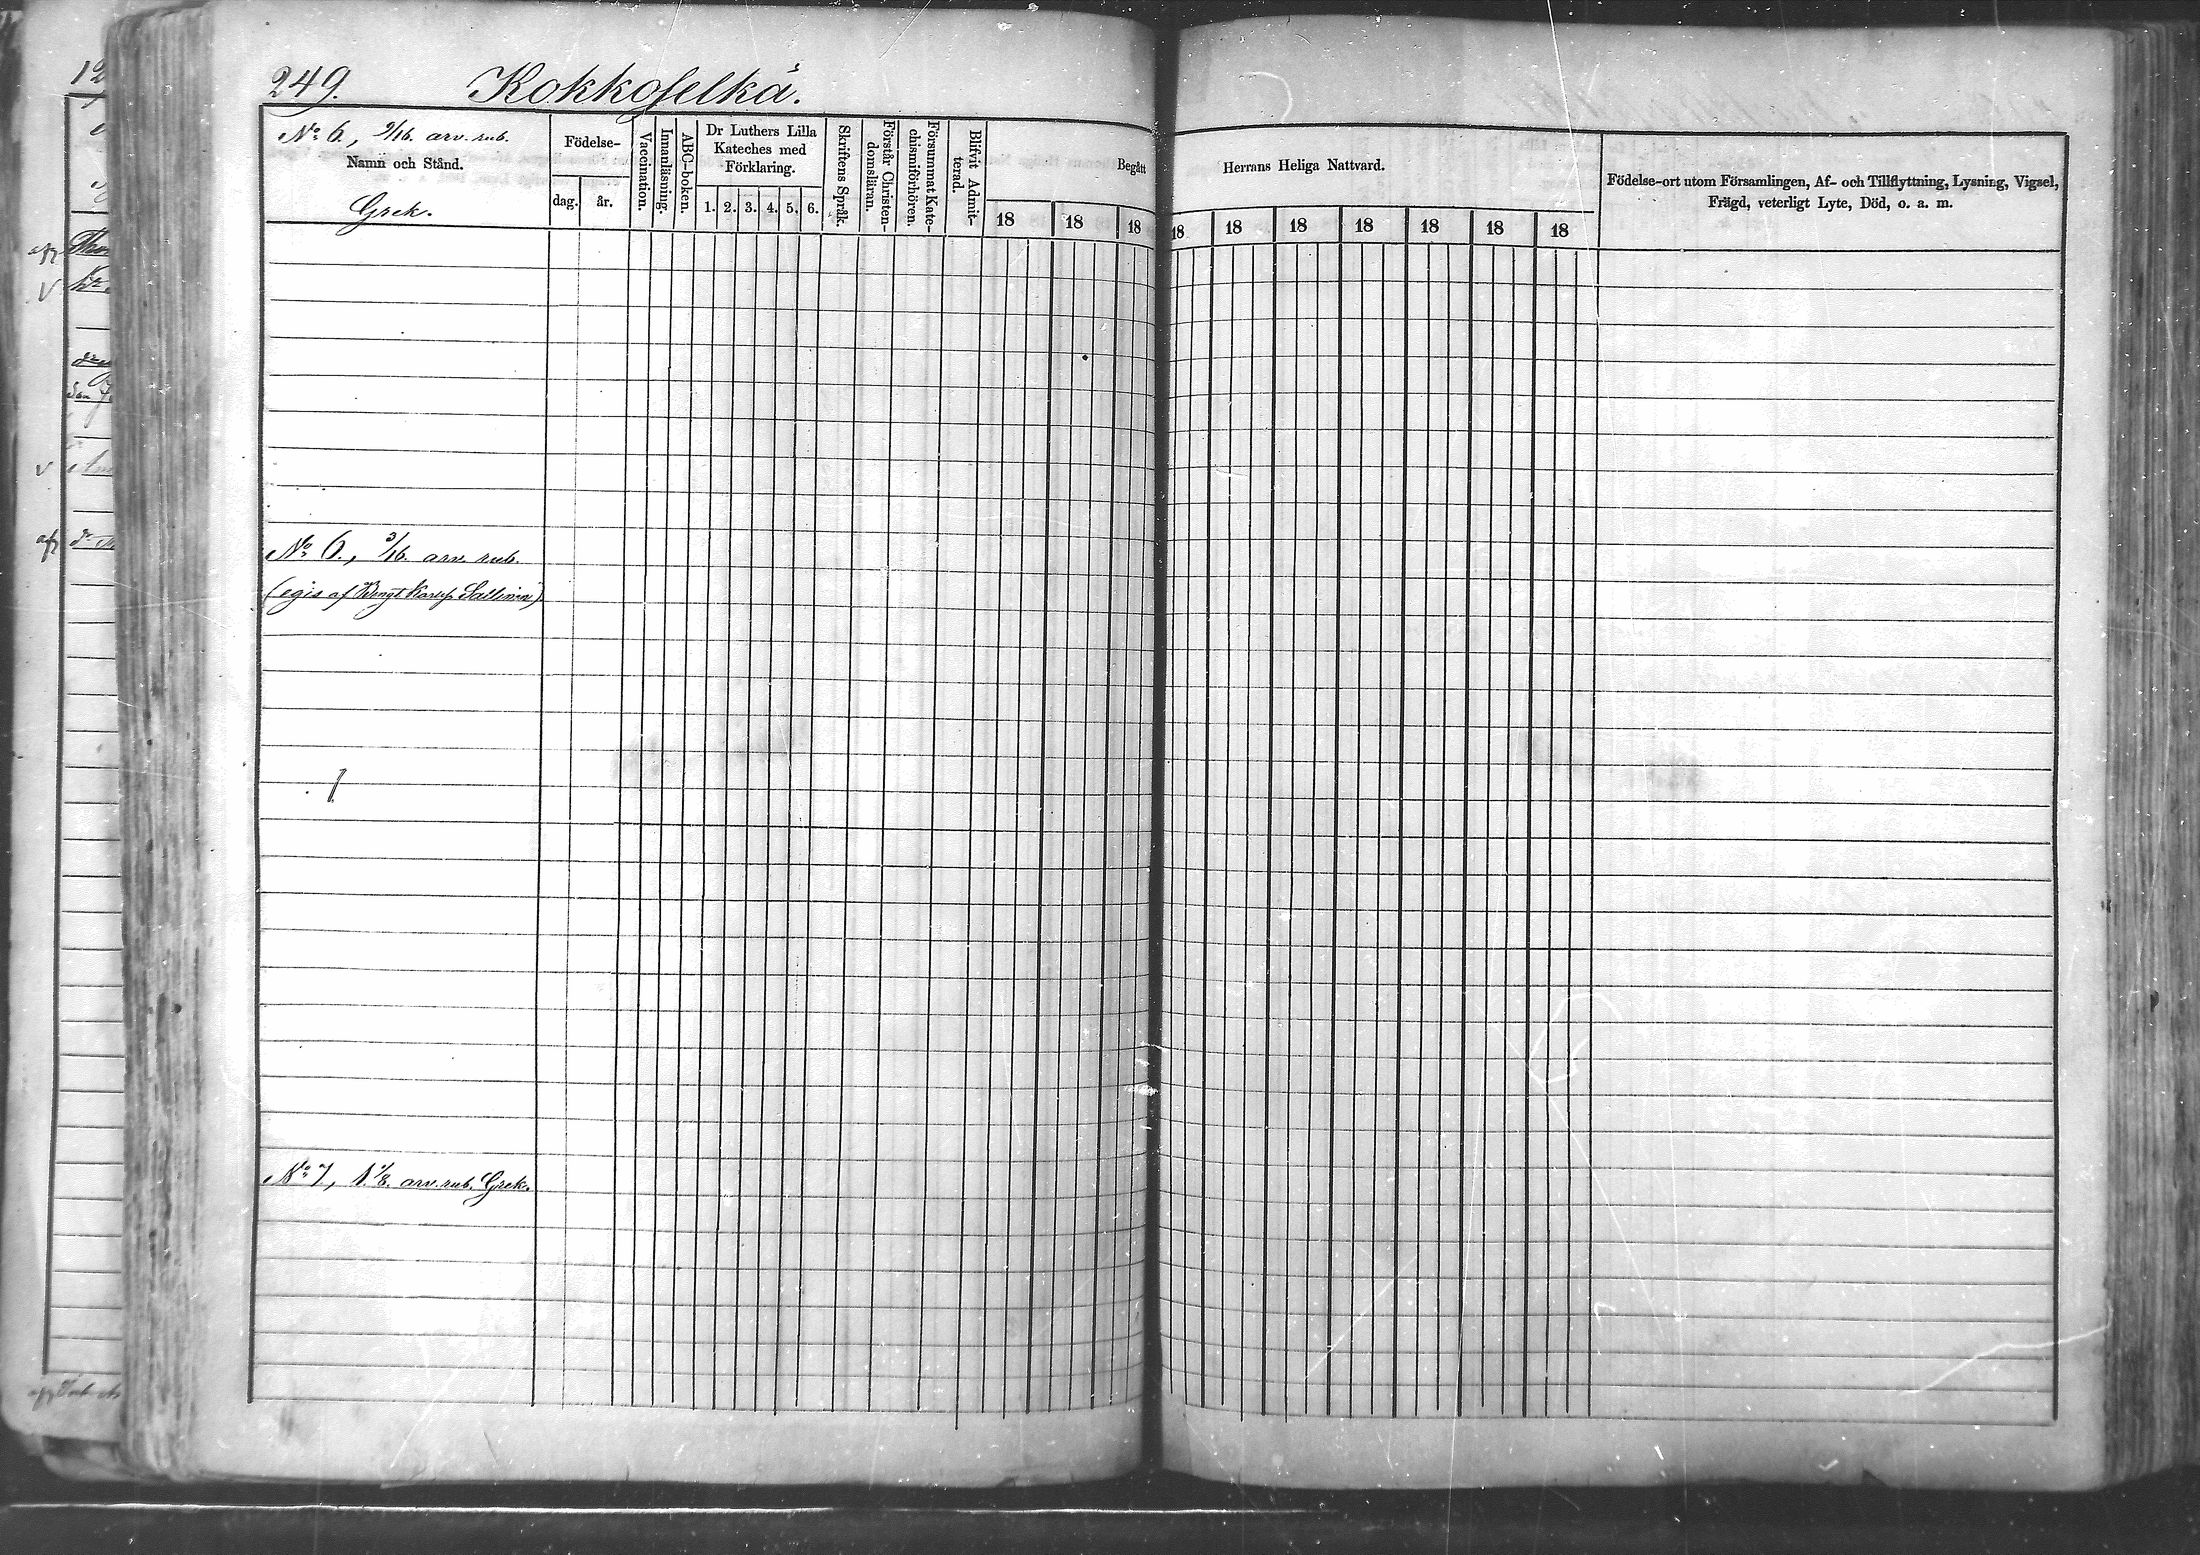 249. Kokkoselkä.
No 6, 9/16. arv. rub.
Namn och Stånd.
Grek.
Födelse-
dag. år.
Vaccination.
Innanläsning.
ABC-boken.
Dr Luthers Lilla
Kateches med
Förklaring.
1. 2. 3. 4. 5. 6.
Skriftens Språk.
Förstår Christen-
domsläran.
Försummat Kate-
chismiförhören.
Blifvit Admit-
terad.
Begått Herrans Heliga Nattvard.
18 18 18 18 18 18 18 18 18
Födelse-ort utom Församlingen, Af- och Tillflyttning, Lysning, Vigsel,
Frägd, veterligt Lyte, Död, o. a. m.
No 6., 3/16. arv. rub.
(egis af Bengt Karlsp Sallinen)
No 7, 1 1/8. arv. rub. Grek.